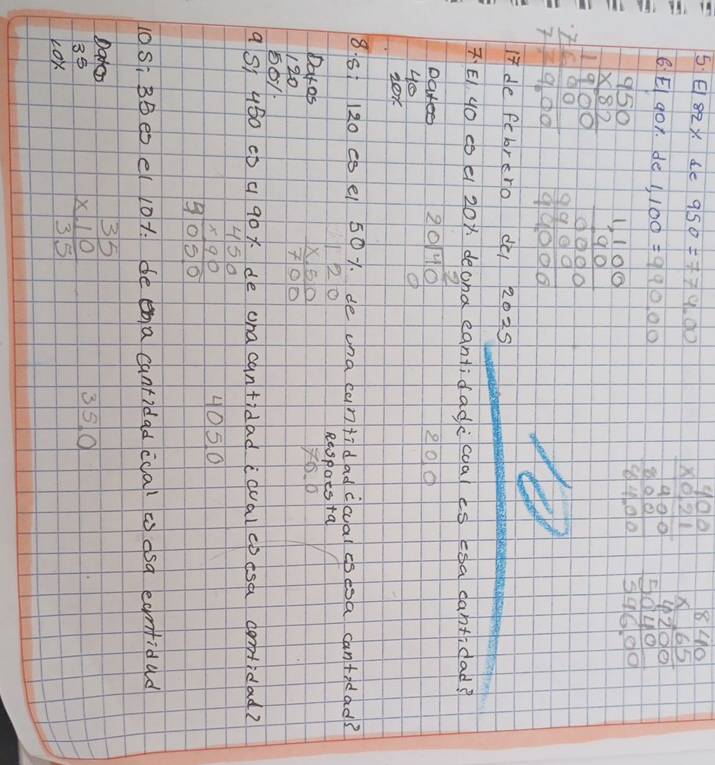 5. El 82% de 950 = 779.00
6. El 90% de 1,100 = 990.00
950
x 82
1900
7600
779.00
1,100
90
0000
9900
99,000
400
x0.21
400
800
84.00
840
x 65
4200
5040
546.00
17 de febrero del 2025
10
7. El 40 es el 20% de una cantidad ¿cual es esa cantidad?
Datos
40
20%
2
20 40
0
200
8. Si 120 es el 50% de una cantidad ¿cual es esa cantidad?
Datos
120
50%
120
x 50
700
Respuesta
70.0
9 Si 450 es el 90% de una cantidad ¿cual es esa cantidad?
450
x 90
9050
4050
10 Si 35 es el 10% de una cantidad ¿cual es esa cantidad
Datos
35
10%
35
x 10
35
35.0